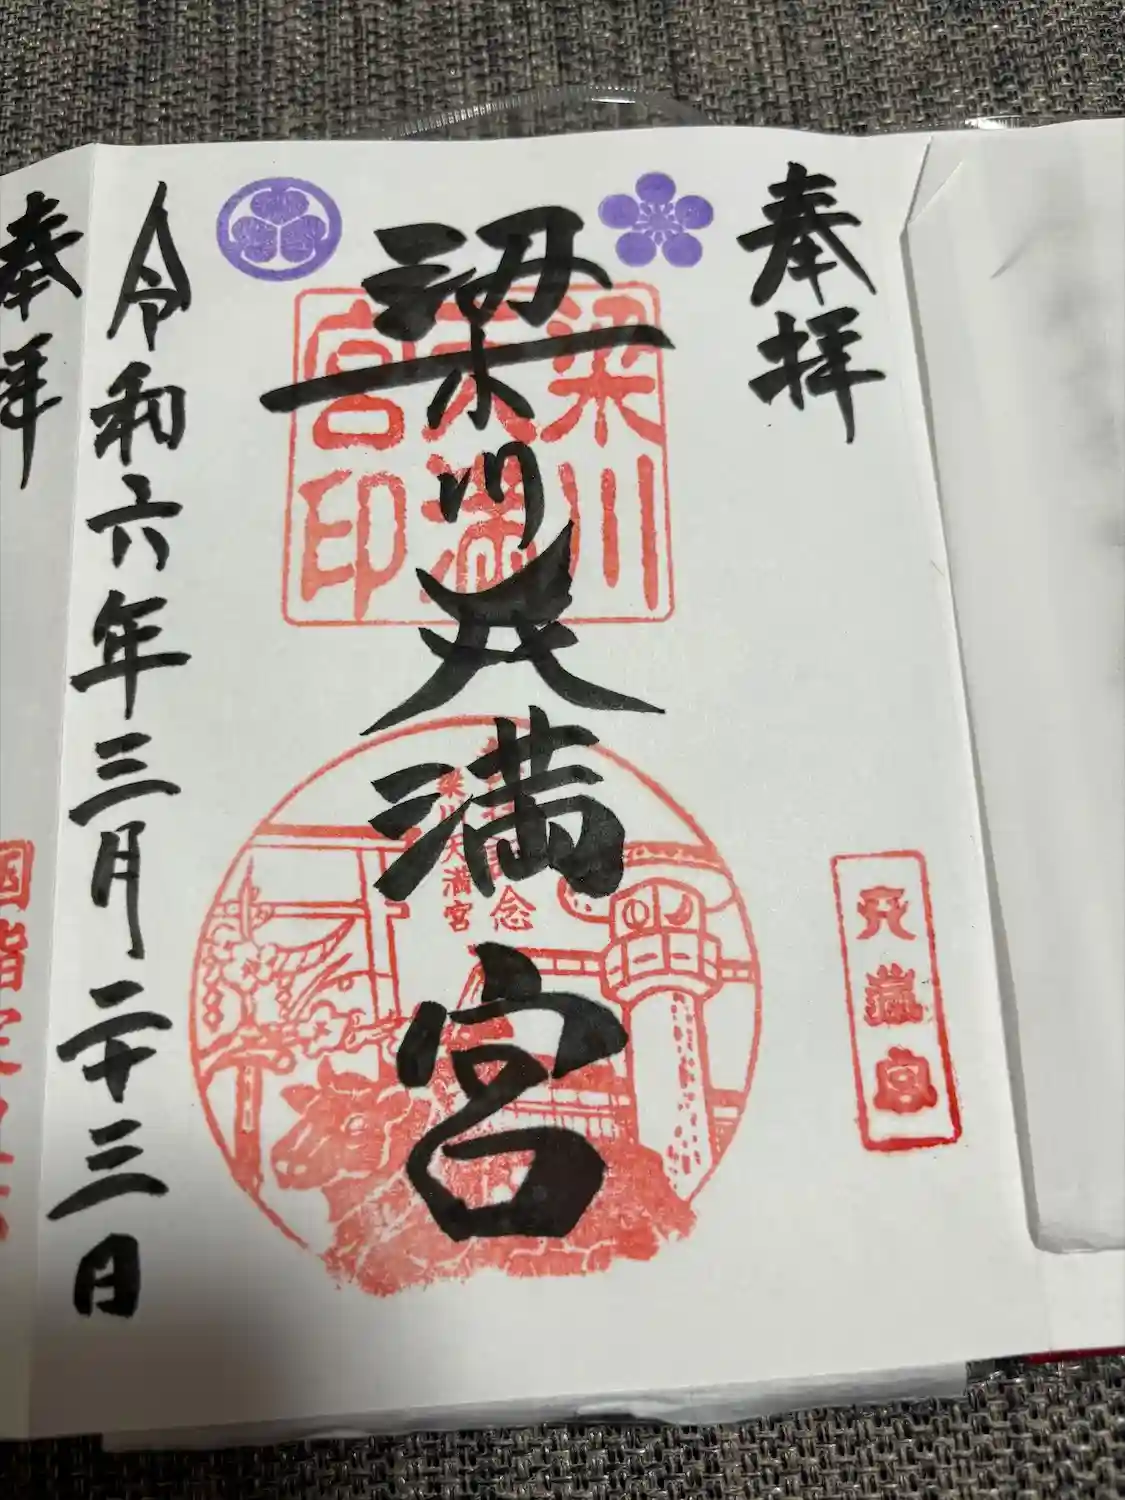 奉拝
梁川天満宮
令和六年三月二十三日
梁川
天満
宮印
参拝記念
梁川天満宮
天満宮
奉拝